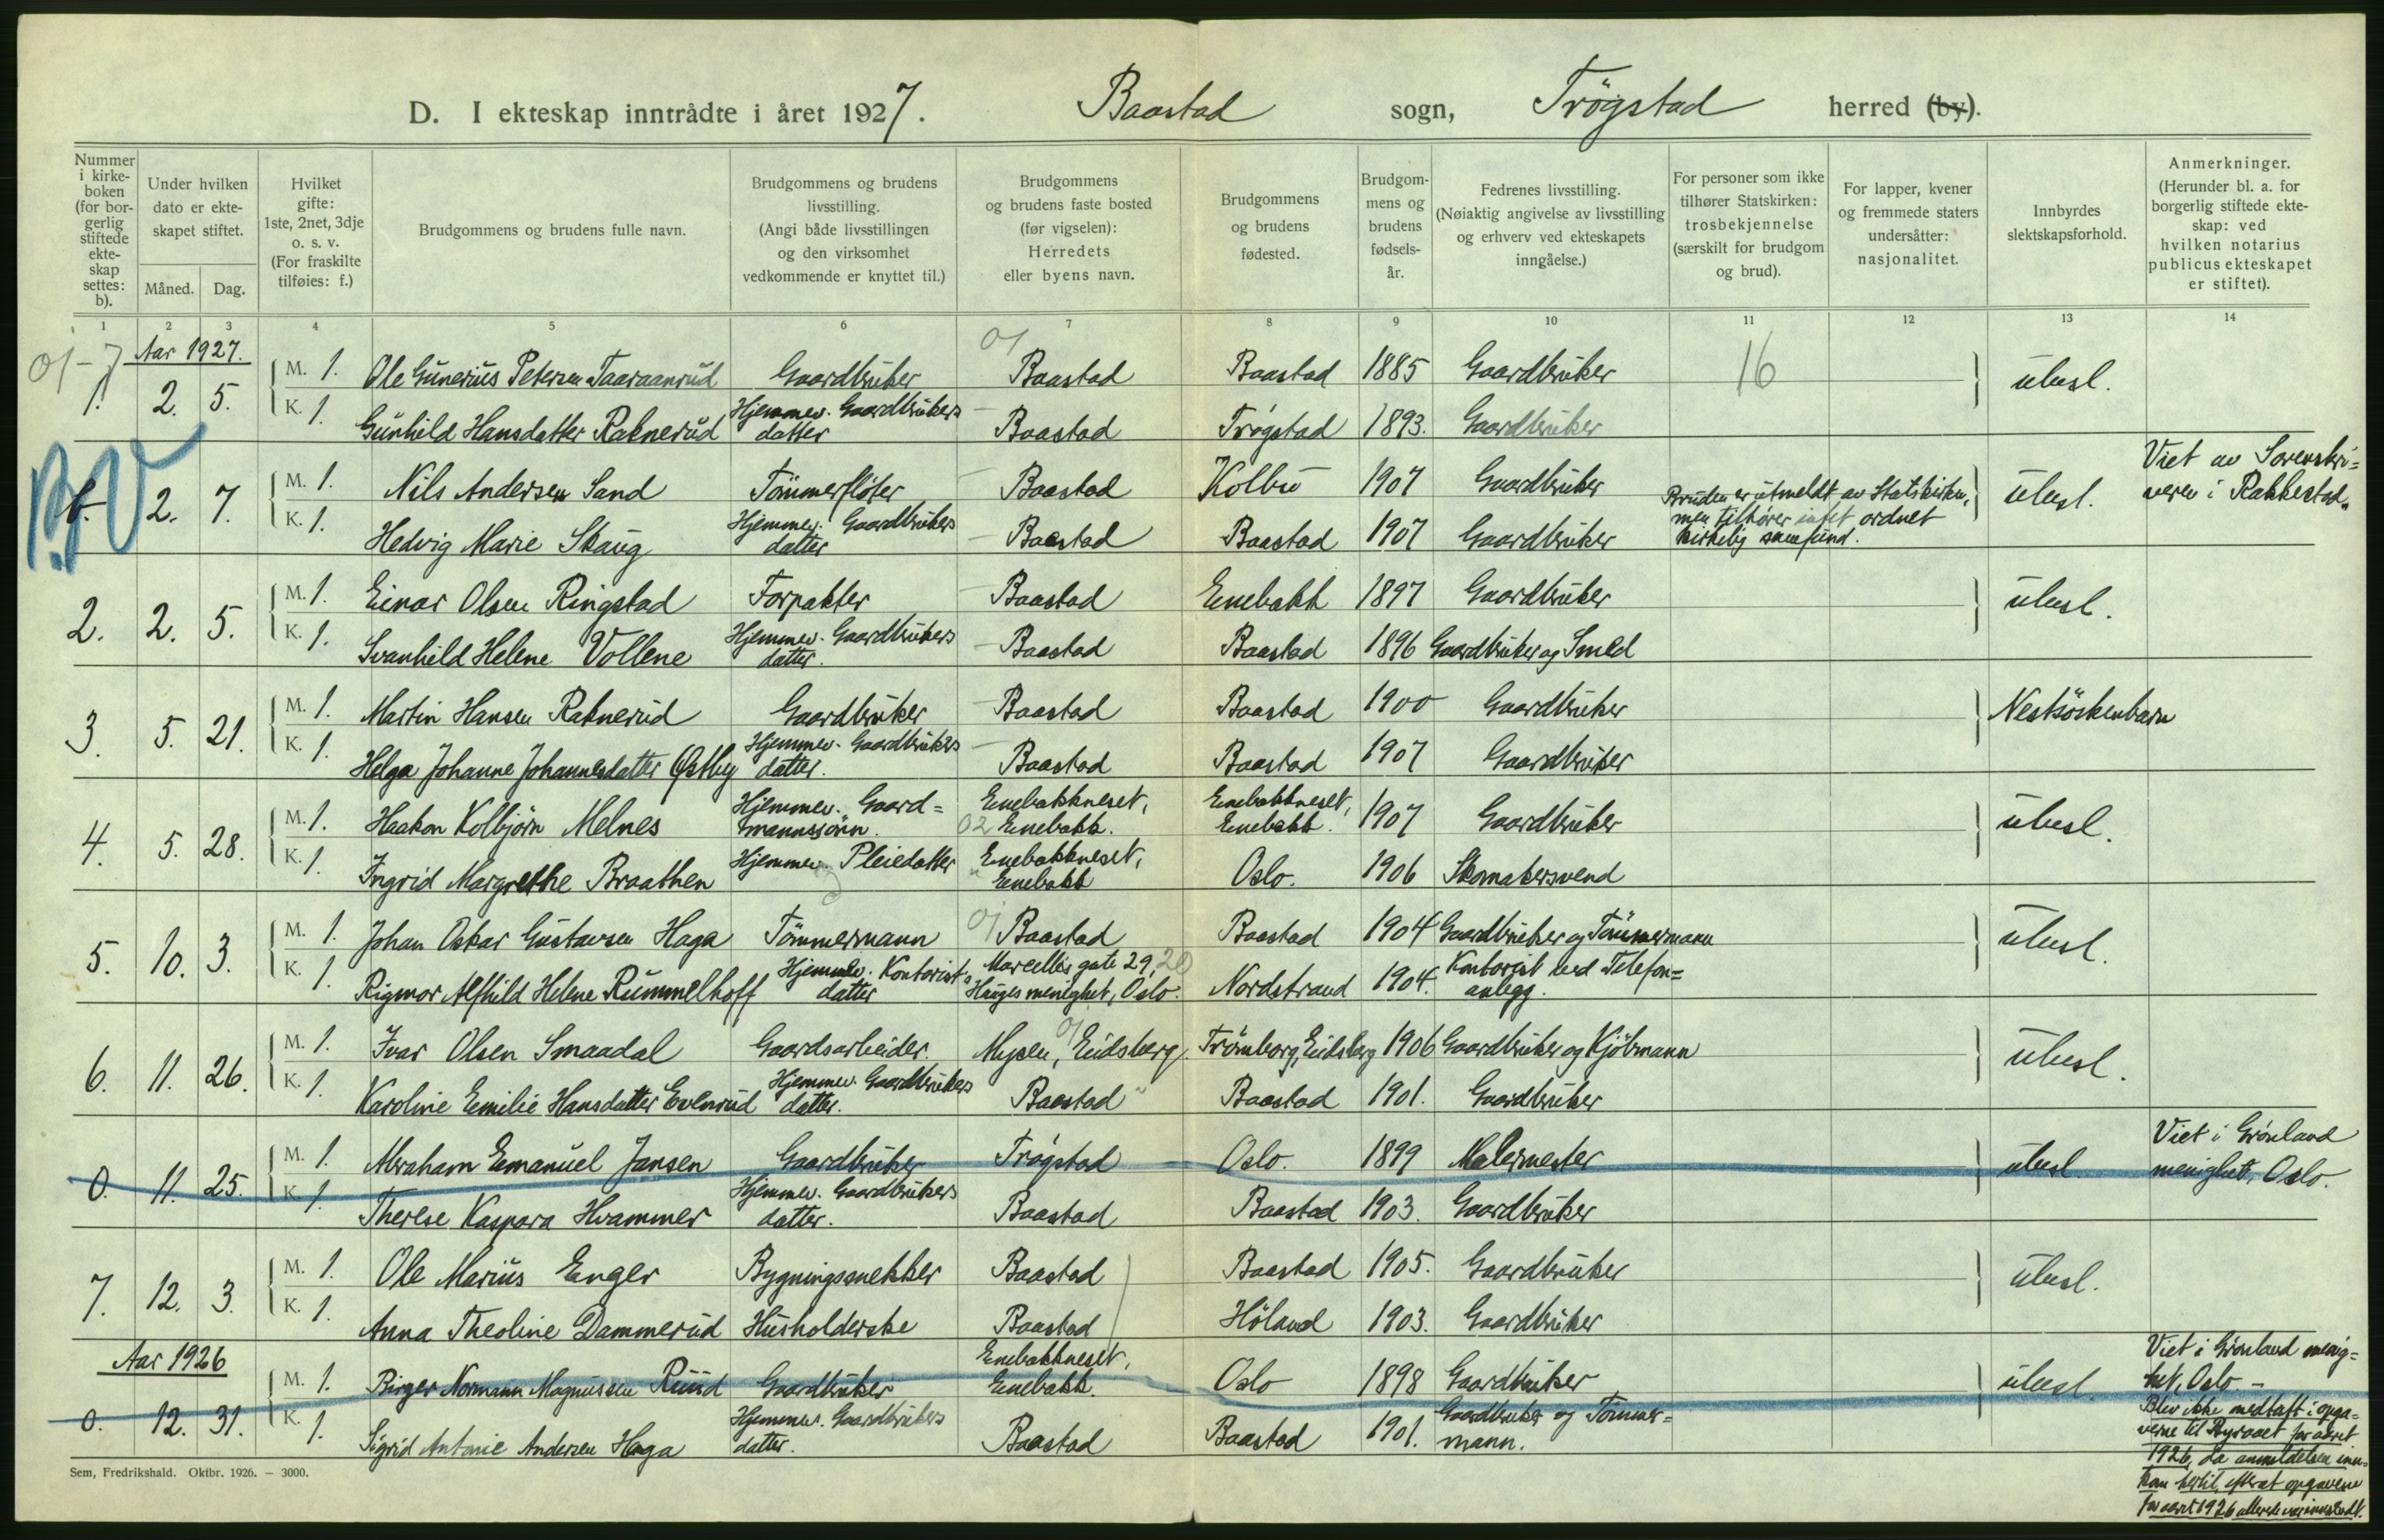 D. I ekteskap inntrådte i året 1927. Baastad sogn, Trögstad herred (by).
Nummer i kirkeboken (for borgerlig stiftede ekteskap settes: b).
Under hvilken dato er ekteskapet stiftet.
Måned. Dag.
Hvilket gifte: 1ste, 2net, 3dje o. s. v. (For fraskilte tilføies: f.)
Brudgommens og brudens fulle navn.
Brudgommens og brudens livsstilling. (Angi både livsstillingen og den virksomhet vedkommende er knyttet til.)
Brudgommens og brudens faste bosted (før vigselen): Herredets eller byens navn.
Brudgommens og brudens fødested.
Brudgommens og brudens fødselsår.
Fedrenes livsstilling. (Nøiaktig angivelse av livsstilling og erhverv ved ekteskapets inngåelse.)
For personer som ikke tilhører Statskirken: trosbekjennelse (særskilt for brudgom og brud).
For lapper, kvener og fremmede staters undersåtter: nasjonalitet.
Innbyrdes slektskapsforhold.
Anmerkninger. (Herunder bl. a. for borgerlig stiftede ekteskap: ved hvilken notarius publicus ekteskapet er stiftet).
1 2 3 4 5 6 7 8 9 10 11 12 13 14
01-7 Aar 1927. 01
1. 2. 5. M. 1. Ole Gunerius Petersen Taaraanrud Gaardbruker Baastad Baastad 1885 Gaardbruker 16 ubesl.
K. 1. Gunhild Hansdatter Raknerud Hjemmev. Gaardbrukers datter Baastad Trögstad 1893. Gaardbruker
b. 2. 7. M. 1. Nils Andersen Sand Tömmerflöter Baastad Kolbu 1907 Gaardbruker Bruden er utmeldt av Statskirken, men tilhører intet ordnet kirkelig samfund. ubesl. Viet av Sorenskriveren i Rakkestad.
K. 1. Hedvig Marie Skaug Hjemmev. Gaardbrukers datter Baastad Baastad 1907 Gaardbruker
2. 2. 5. M. 1. Einar Olsen Ringstad Forpakter Baastad Enebakk 1897 Gaardbruker ubesl.
K. 1. Svanhild Helene Vollene Hjemmev. Gaardbrukers datter. Baastad Baastad 1896 Gaardbruker og Smed
3. 5. 21. M. 1. Martin Hansen Raknerud Gaardbruker Baastad Baastad 1900 Gaardbruker Nestsöskenbarn
K. 1. Helga Johanne Johannesdatter Østby Hjemmev. Gaardbrukers datter. Baastad Baastad 1907 Gaardbruker
4. 5. 28. M. 1. Haakon Kolbjörn Melnes Hjemmev. Gaardmannssönn. Enebakkneset, 02 Enebakk. Enebakkneset, Enebakk. 1907 Gaardbruker ubesl.
K. 1. Ingrid Margrethe Braathen Hjemmev. Pleiedatter Enebakkneset, Enebakk Oslo. 1906 Skomakersvend
5. 10. 3. M. 1. Johan Oskar Gustavsen Haga Tömmermann 01 Baastad Baastad 1904 Gaardbruker og Tömmermann ubesl.
K. 1. Rigmor Alfhild Helene Rummelhoff Hjemmev. Kontorists datter Marcellis gate 29, 20 Hauges menighet, Oslo. Nordstrand 1904. Kontorist ved Telefonanlegg.
6. 11. 26. M. 1. Ivar Olsen Smaadal Gaardsarbeider. 01 Mysen, Eidsberg Trömborg, Eidsberg 1906 Gaardbruker og Kjöbmann ubesl.
K. 1. Karoline Emilie Hansdatter Evenrud Hjemmev. Gaardbrukers datter. Baastad Baastad 1901. Gaardbruker
0. 11. 25. M. 1. Abraham Emanuel Jansen Gaardbruker Trögstad Oslo. 1899 Malermester ubesl. Viet i Grönland menighet, Oslo.
K. 1. Therese Kaspara Hvammer Hjemmev. Gaardbrukers datter. Baastad Baastad 1903. Gaardbruker
7. 12. 3. M. 1. Ole Marius Enger Bygningssnekker Baastad Baastad 1905. Gaardbruker ubesl.
K. 1. Anna Theoline Dammerud Husholderske Baastad Höland 1903. Gaardbruker
Aar 1926
0. 12. 31. M. 1. Birger Normann Magnussen Ruud Gaardbruker Enebakkneset, Enebakk. Oslo 1898 Gaardbruker ubesl. Viet i Grönland menighet, Oslo. –
K. 1. Sigrid Antonie Andersen Haga Hjemmev. Gaardbrukers datter. Baastad Baastad 1901. Gaardbruker og Tömmermann.
Blev ikke medtatt i opgaverne til Byraaet for aaret 1926, da anmeldelsen innkom hertil, efterat opgavene for aaret 1926 allerede var innsendt.
Sem, Fredrikshald. Oktbr. 1926. – 3000.